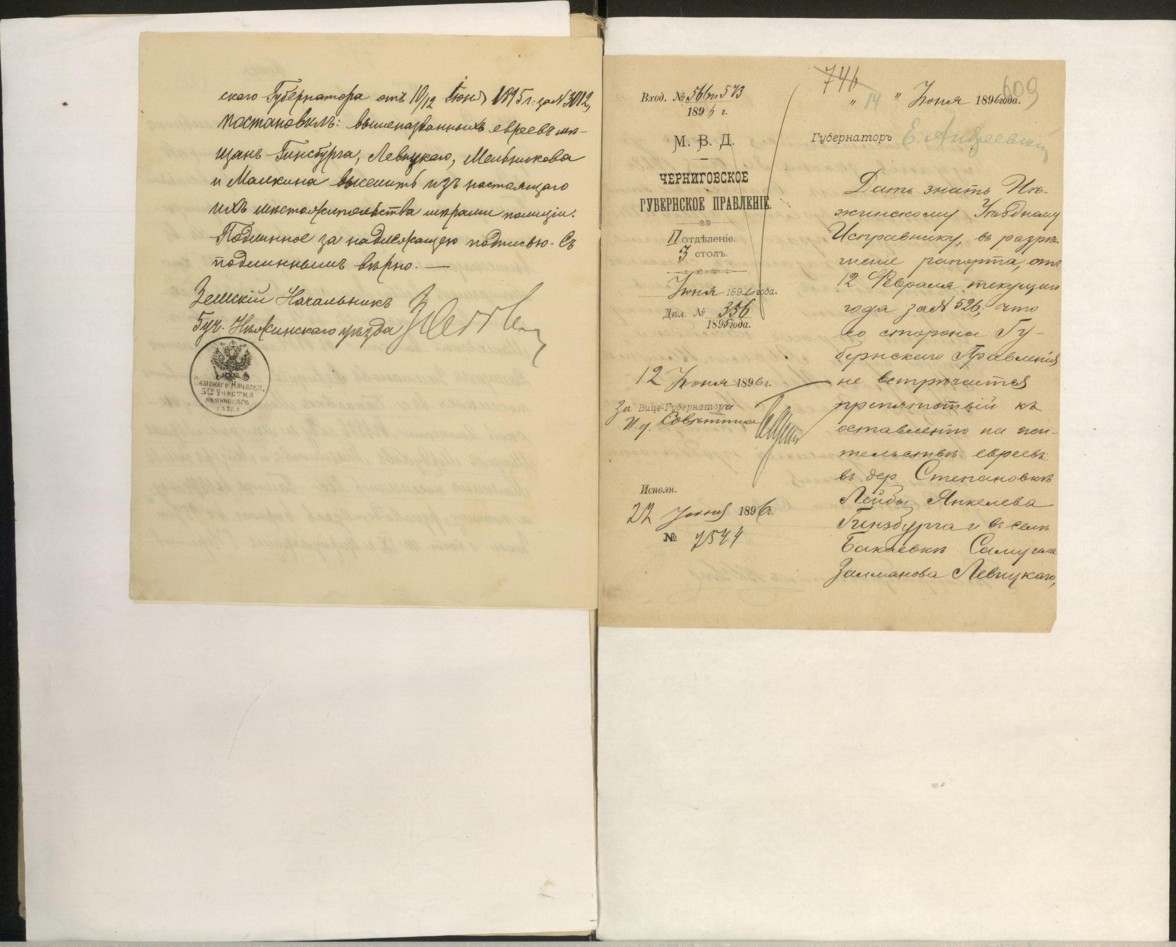 скаго Губернатора отъ 10/12 Іюня 1895 г. за № 3012,
постановилъ: вышеназванныхъ евреевъ мѣ-
щанъ Гинсбурга, Левицкаго, Мельникова
и Малкина выселить изъ настоящаго
ихъ мѣстожительства мѣрами полиціи.
Подлинное за надлежащею подписью. Съ
подлиннымъ вѣрно. —
Земскій Начальникъ
5 уч. Нѣжинскаго уѣзда
Земскаго Начальн.
5го участка
Нѣжинскаго
уѣзда
746
609
Вход. №
189 г.
М. В. Д.
ЧЕРНИГОВСКОЕ
ГУБЕРНСКОЕ ПРАВЛЕНІЕ.
II отдѣленіе.
3 столъ.
Іюня 1896 года.
Дѣл. № 356
1895 года.
12 Іюня 1896 г.
За Вице-Губернатора
И. д. Совѣтника
Исполн.
22 Іюня 1896 г.
№ 7544
„ 14 „ Іюня 1896 года.
Губернаторъ Е. Андреевскій
Дать знать Нѣ-
жинскому Уѣздному
Исправнику, въ разрѣ-
шеніе рапорта, отъ
12 Февраля текущаго
года за № 526, что
со стороны Гу-
бернскаго Правленія
не встрѣчается
препятствій къ
оставленію на жи-
тельствѣ евреевъ
въ дер. Степановкѣ
Лейбы Янкелева
Гинзбурга и въ селѣ
Бакаевкѣ Самуила
Залманова Левицкаго,